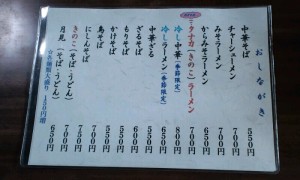 おしながき
中華そば 550円
チャーシューメン 700円
みそラーメン 650円
からみそラーメン 700円
クナガ(きのこ)ラーメン 700円
冷し中華(季節限定) 800円
冷しラーメン(季節限定) 650円
中華ざる 650円
ざるそば 650円
もりそば 600円
かけそば 500円
鳥そば 650円
にしんそば 700円
きのこ(そば・うどん) 700円
月見(そば・うどん) 550円
☆各麺類大盛り 150円増